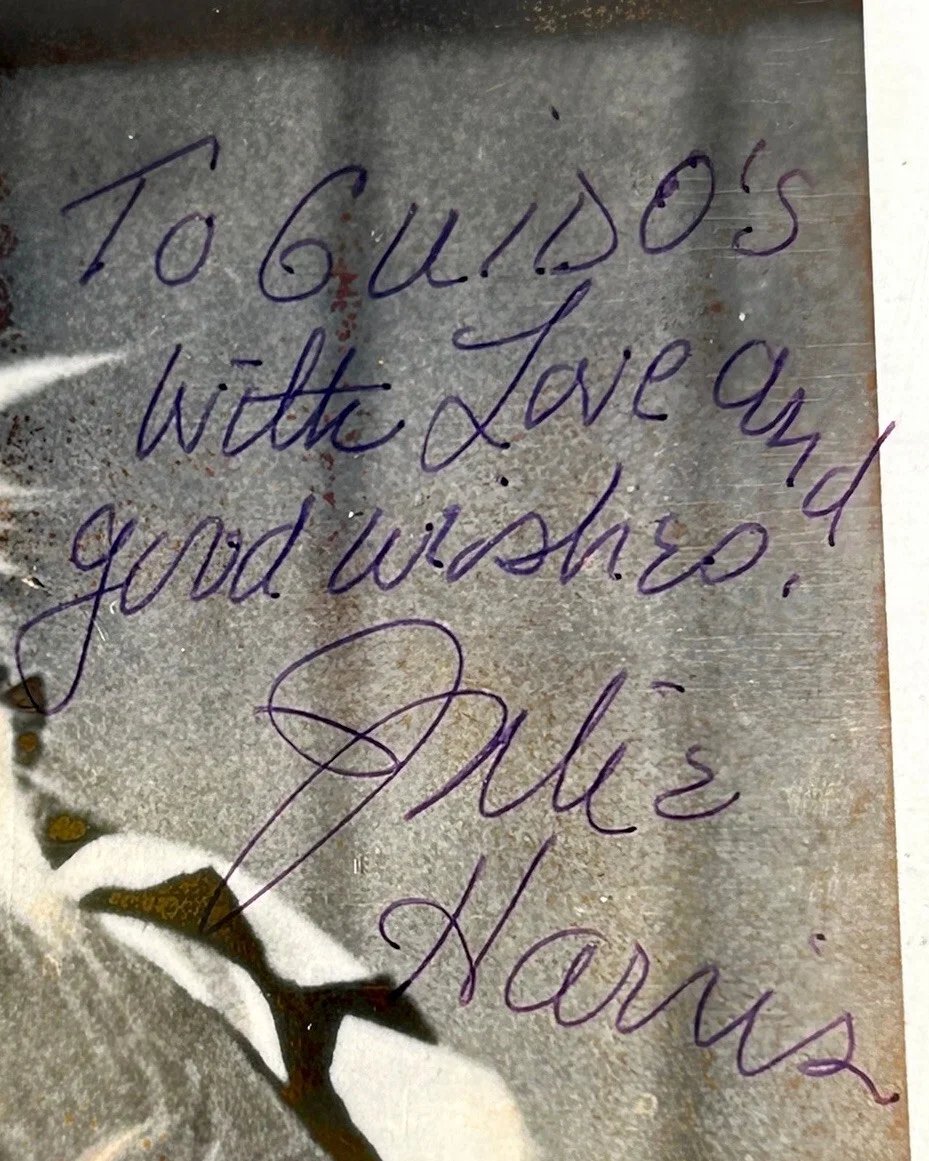 To GUIDO's
with Love and
good wishes!
Julie
Harris